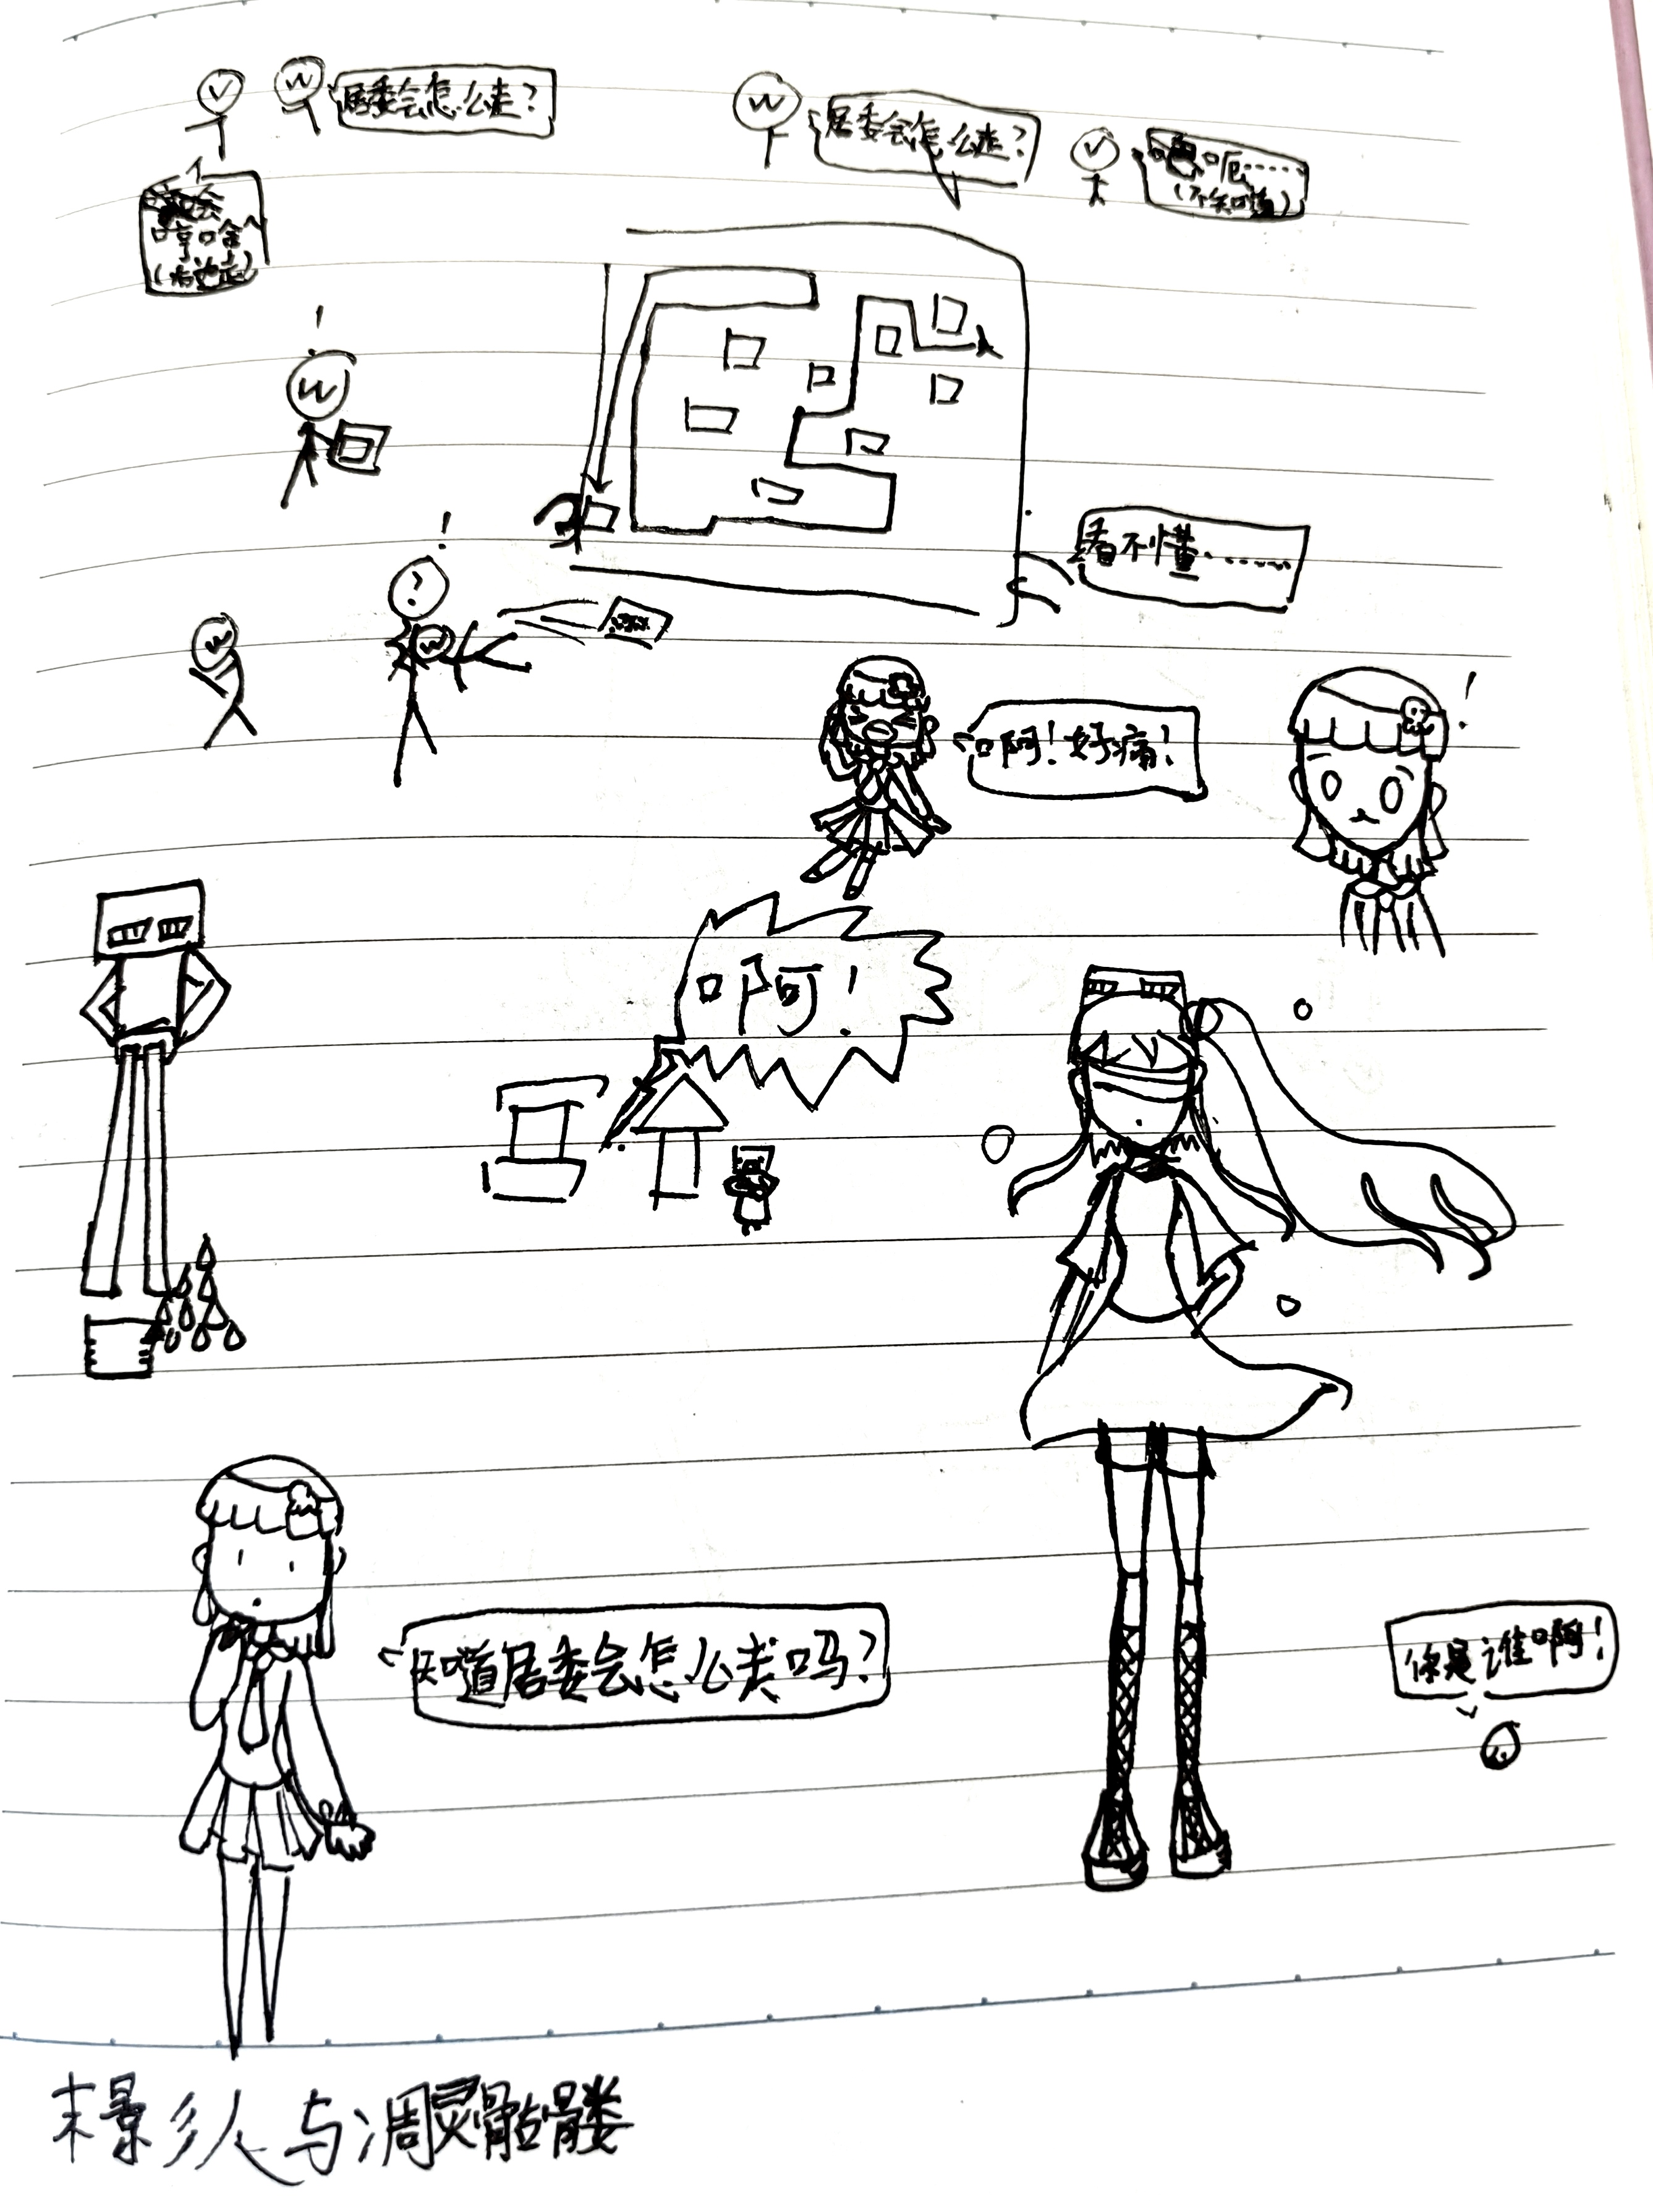 V
W
居委会怎么走？
W
居委会怎么走？
V
呃……
（不知道）
哼啥
！
W
看不懂……
！
？
W
W
啊！好痛！
！
啊！
知道居委会怎么走吗？
你是谁啊！
末影人与凋灵骷髅